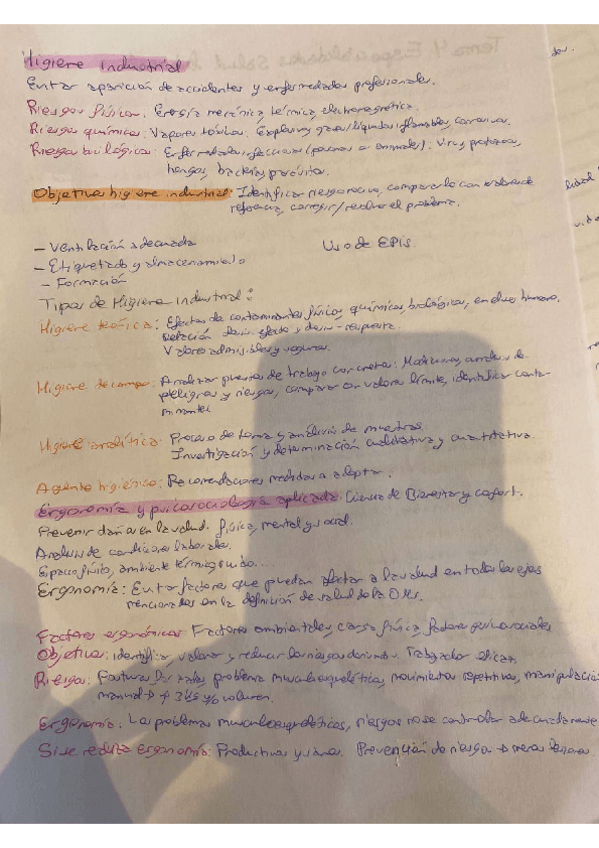 Higiene industrial
Evitar aparición de accidentes y enfermedades profesionales.
Riesgos físicos: Energía mecánica, térmica, electromagnética.
Riesgos químicos: Vapores tóxicos: Explosivos, gases/líquidos inflamables, corrosivos.
Riesgos biológicos: Enfermedades infecciosas (personas o animales): virus, protozoos,
hongos, bacterias, parásitos.
Objetivos higiene industrial: Identificar riesgo nocivo, compararlo con valores de
referencia, corregir/resolver el problema.
- Ventilación adecuada
Uso de EPIS.
- Etiquetado y almacenamiento
- Formación
Tipos de Higiene Industrial:
Higiene teórica: Efectos de contaminantes físicos, químicos, biológicos, en el ser humano.
Relación dosis-efecto y dosis-respuesta.
Valores admisibles y seguros.
Higiene de campo: Analizar puestos de trabajo concretos: peligros y riesgos, comparar con valores límite, identificar conta-
minantes
Higiene analítica: Proceso de toma y análisis de muestras.
Investigación y determinación cualitativa y cuantitativa.
Agente higiénico: Recomendaciones medidas a adoptar.
Ergonomía y psicosociología aplicada: Ciencia de Bienestar y confort.
Prevenir daños en la salud. física, mental y social.
Análisis de condiciones laborales.
Espacio físico, ambiente térmico, ruido....
Ergonomía: Evitar factores que puedan afectar a la salud en todos los ejes
mencionados en la definición de salud de la OMS.
Factores ergonómicos: Factores ambientales y carga física, factores psicosociales
Objetivo: Identificar, valorar y reducir los riesgos derivados. Trabajador
Riesgos: Posturas problema musculoesquelético, movimientos repetitivos, manipulación
manual → + 3kg y/o volumen.
Ergonomía: Los problemas musculoesqueléticos, riesgos no se controlar adecuadamente
Si se realiza ergonomía: Productivos y sanos. Prevención de riesgos → menos lesiones.